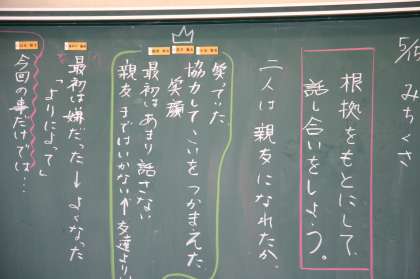 5/15
みちくさ
根拠をもとにして
話し合いをしよう。
二人は親友になれたか。
笑でいた
協力してこいをつかまえた
笑顔
最初はあまり話さない
親友まではいかない↑友達より
最初は嫌だった→よくなった
「よりによって」
今回の事だけでは…